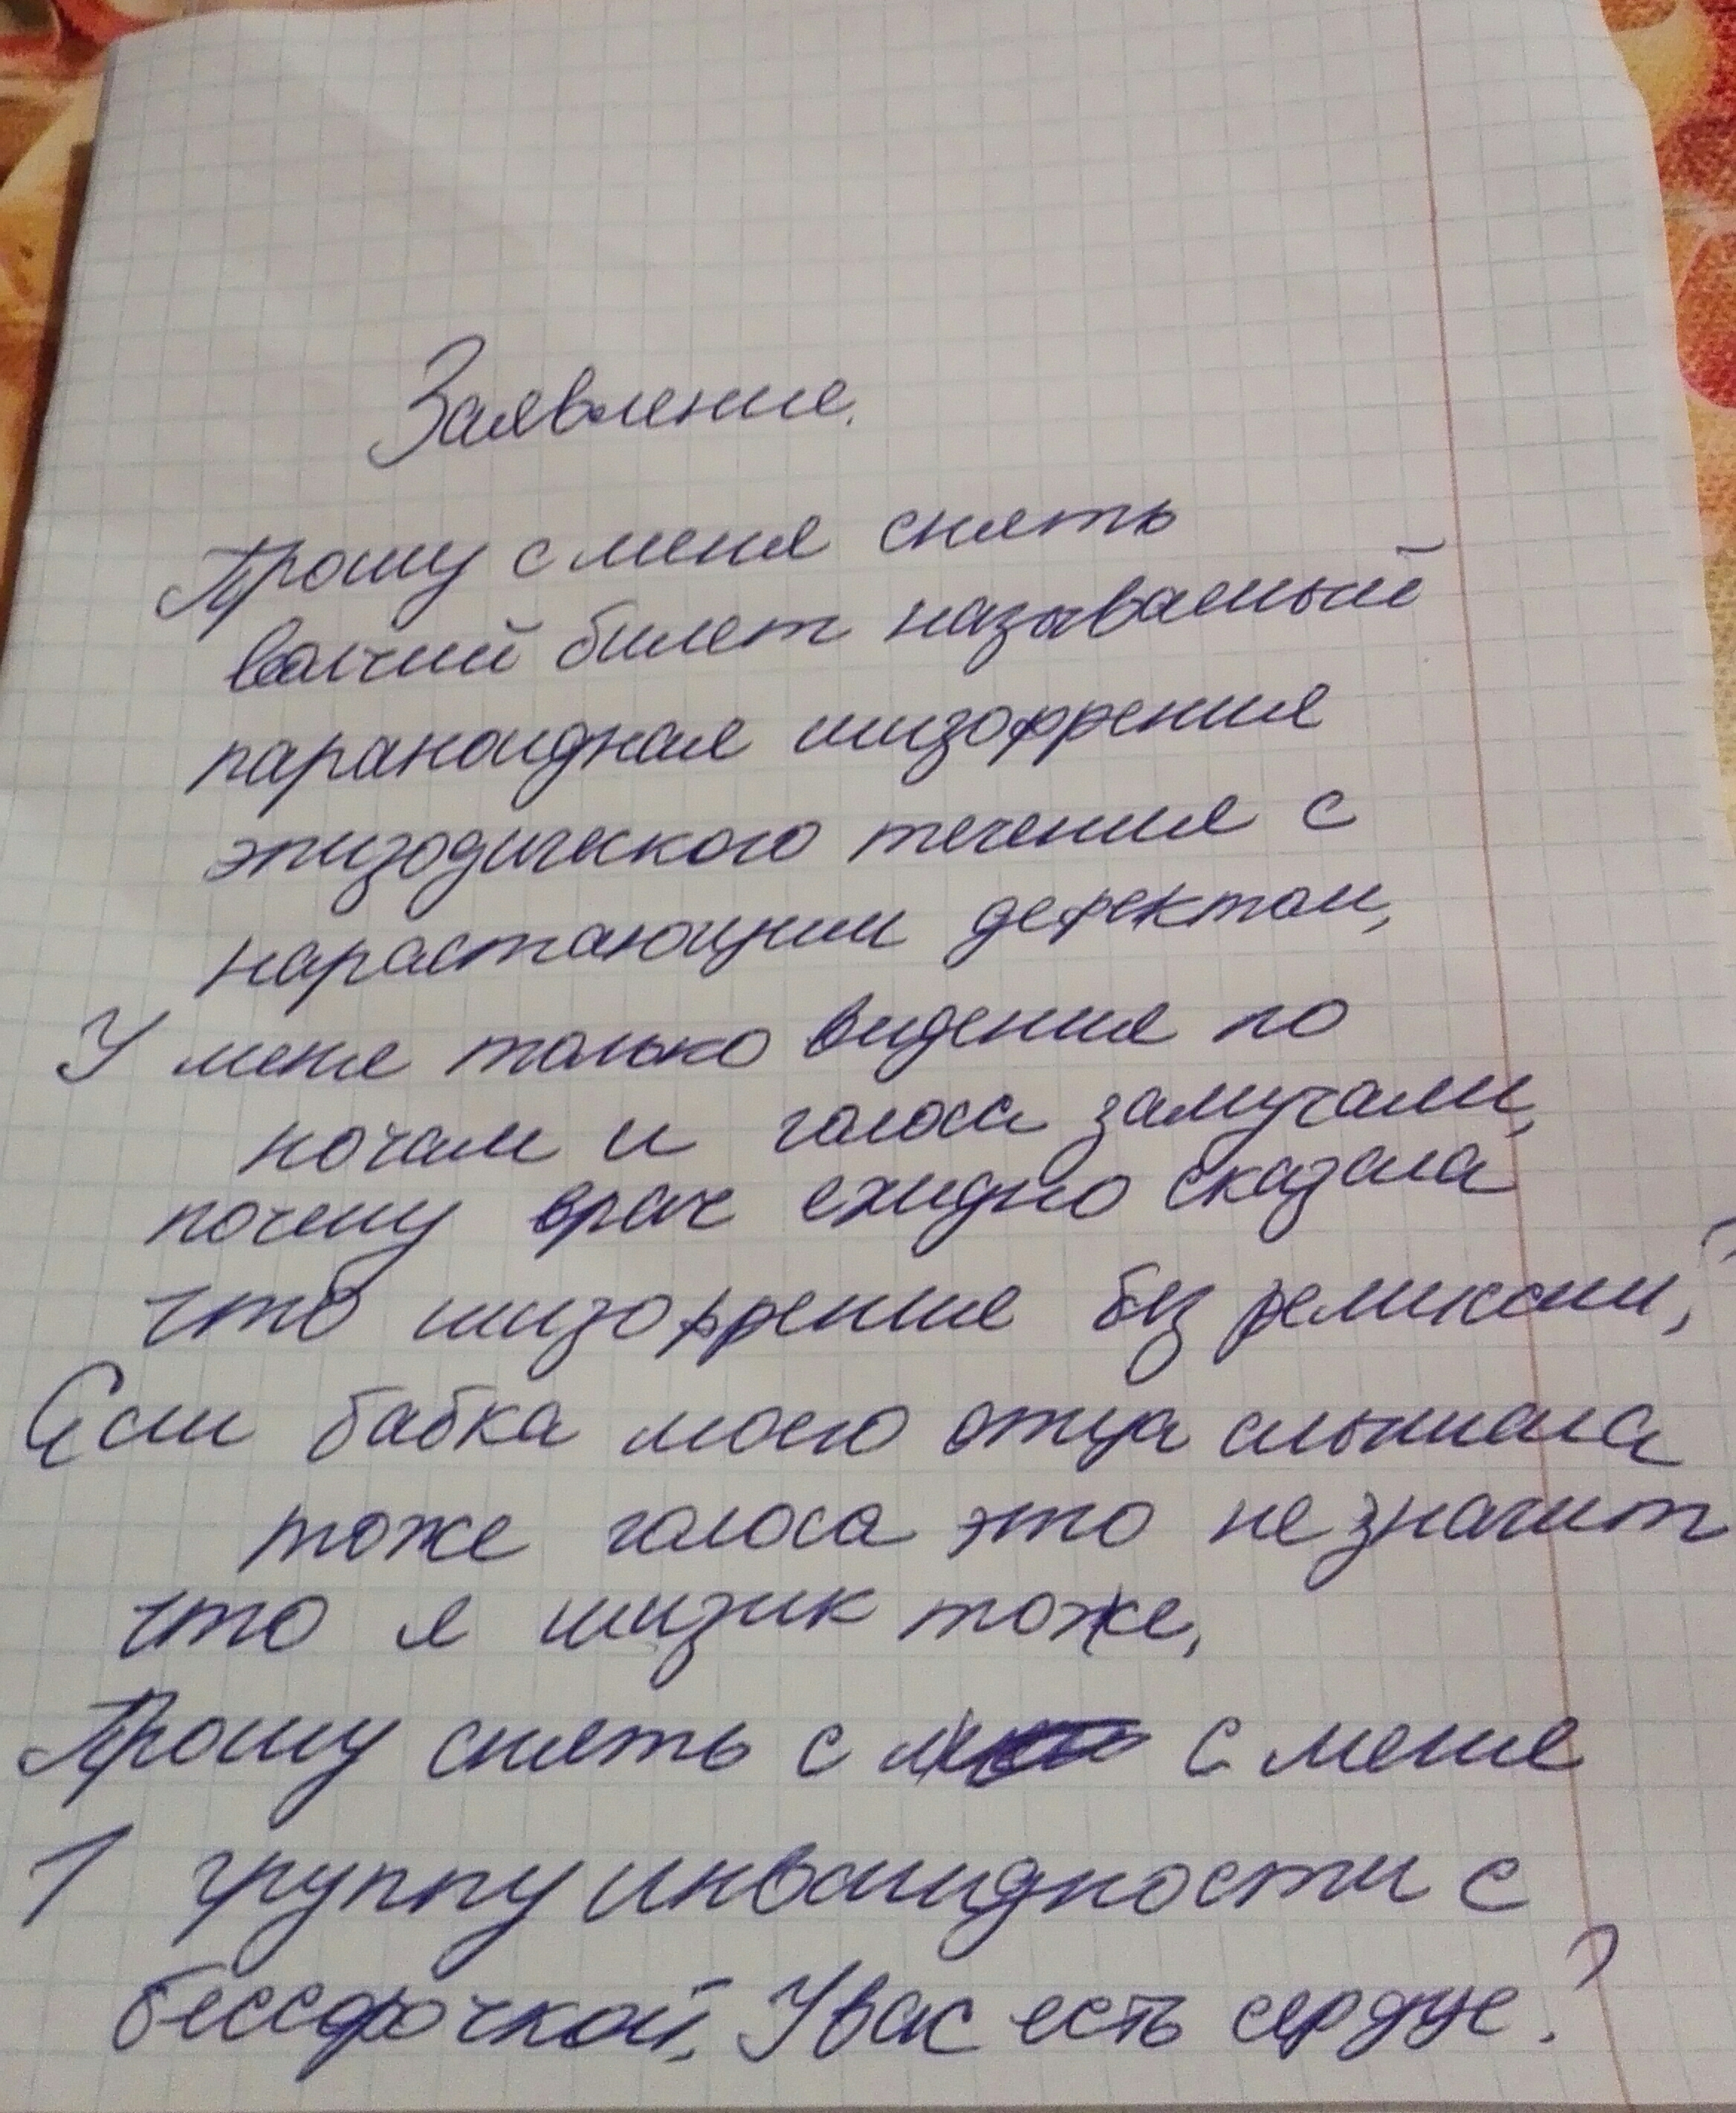 Заявление.
Прошу с меня снять
волчий билет называемый
параноидная шизофрения
эпизодического течения с
нарастающим дефектом,
У меня только видения по
ночам и голоса замучали,
почему врач ехидно сказала
что шизофрения без ремиссии,?
Если бабка моего отца слышала
тоже голоса это не значит
что я шизик тоже,
Прошу снять с с меня
1 группу инвалидности с
бессрочкой, У вас есть сердце?